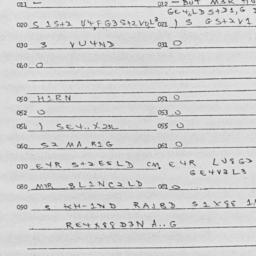 021 —
012 — BUT M3R
GE4,LD S+21,G
020 S 1S+2 V4,FG3S+2VOL3 021 ) S GS+2V1
030 3 VU4ND 031 O
040 O
050 H1RN 051 O
052 O 053 O
054 ) SE4..X2L 055 O
060 S2 MA,R1G 061 O
070 E4R S+2EELD CM, E4R LU8G2
GE4V2L3
080 M1R BL1NC2LD O
090 S KH-1ND RA1BD S1X88 1
RE4X88D3N A..G